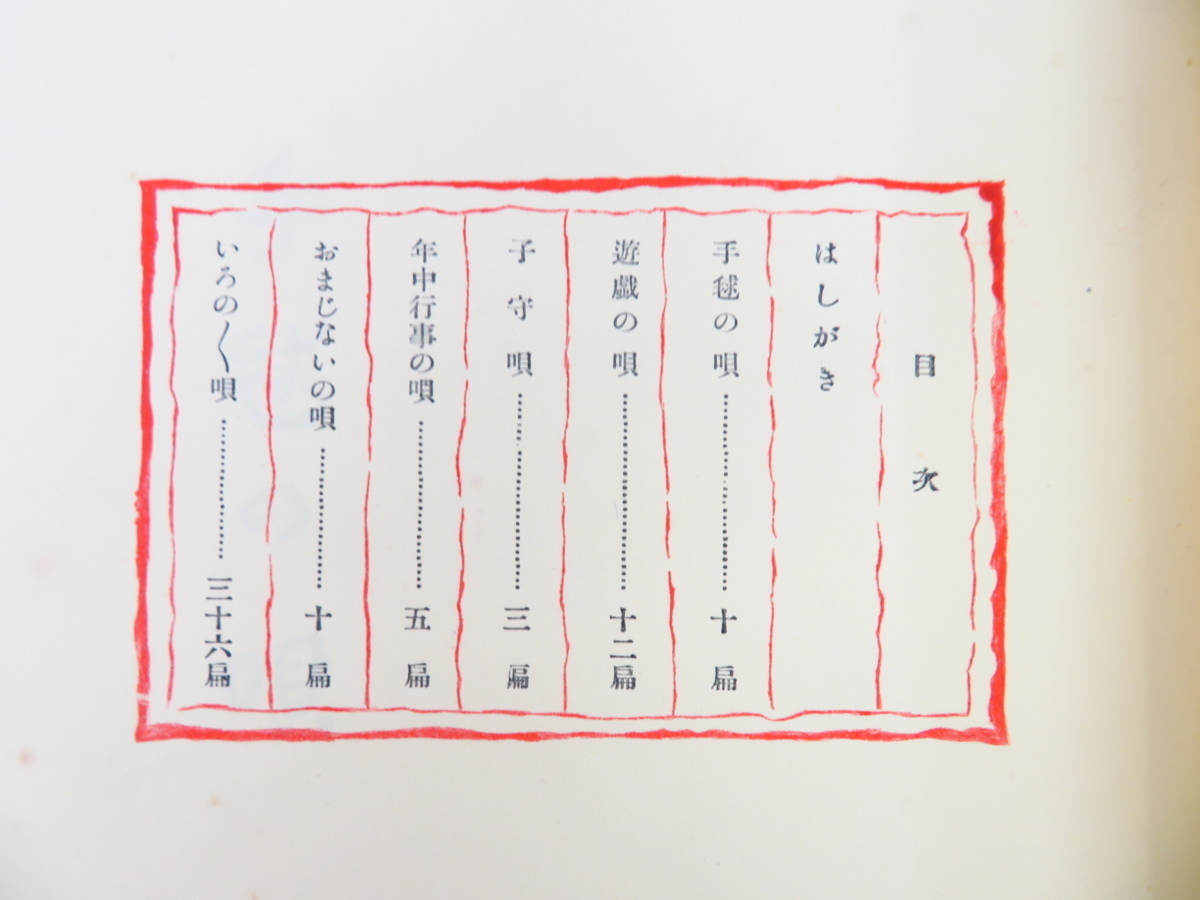 目次
はしがき
手毬の唄……………十扁
遊戯の唄……………十二扁
子守唄……………三扁
年中行事の唄……………五扁
おまじないの唄……………十扁
いろの〱唄……………三十六扁